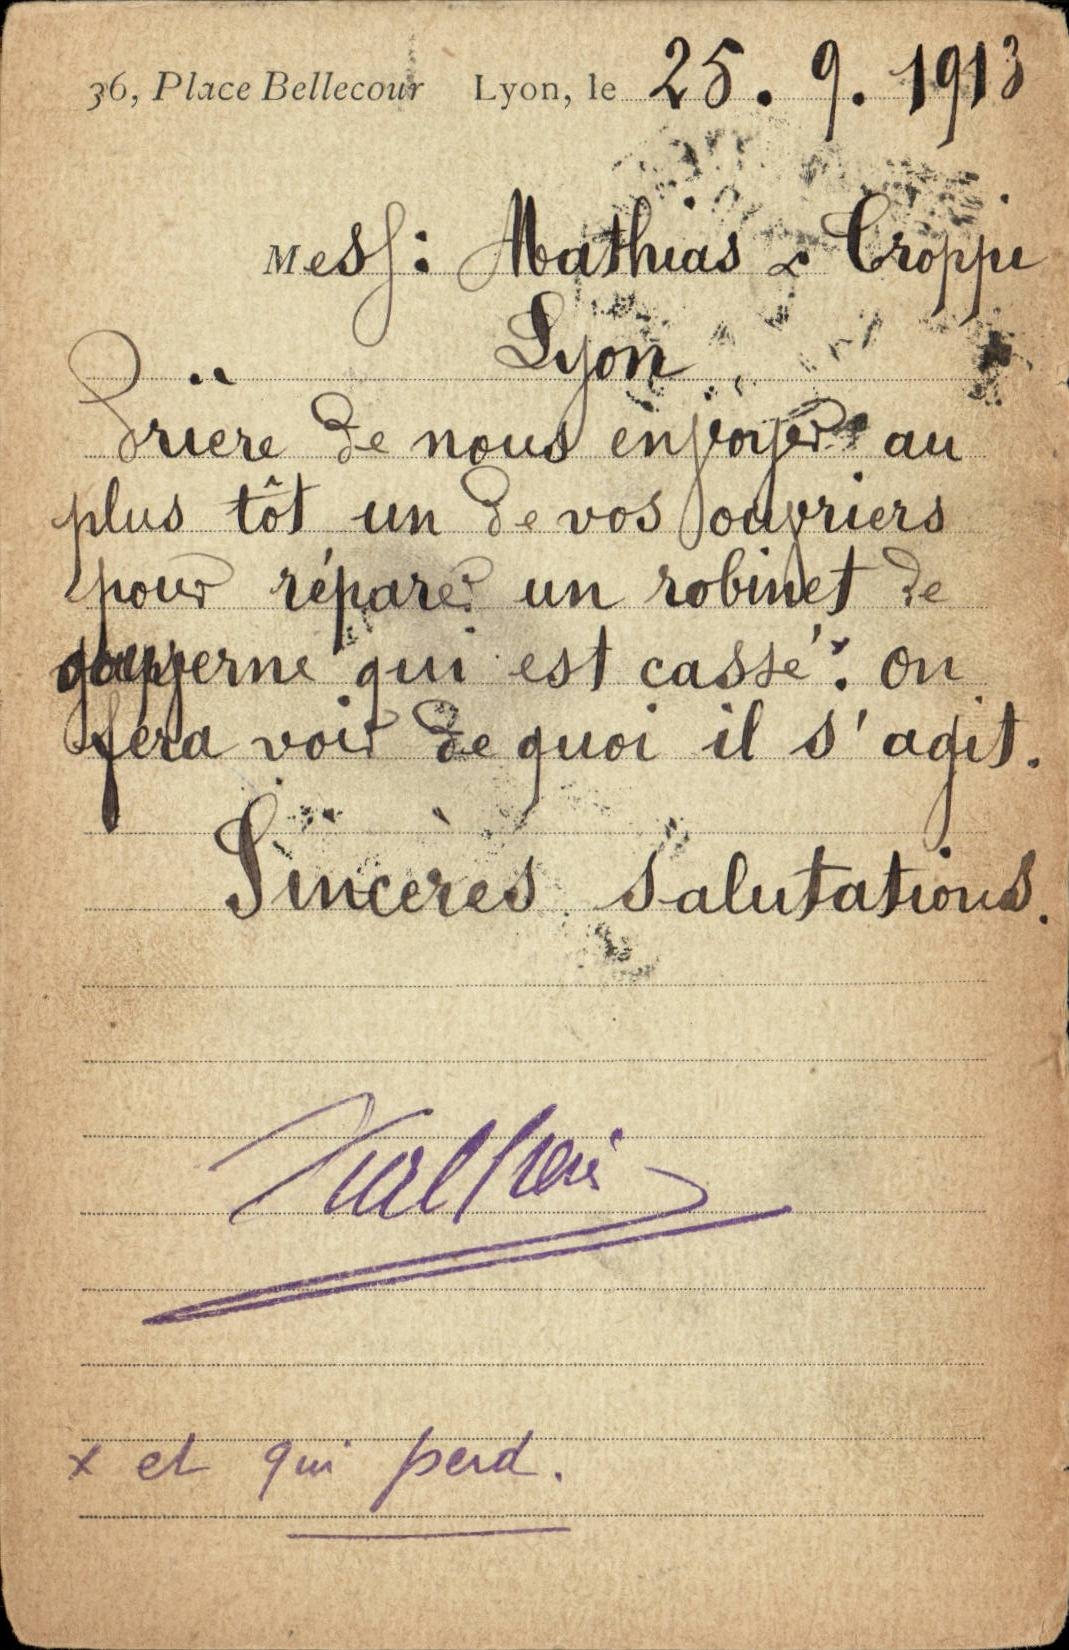 36, Place Bellecour Lyon, le 25. 9. 1913
Mess: Mathias & Croppi
Lyon
Prière de nous envoyer au
plus tôt un de vos ouvriers
pour réparer un robinet de
gouverne qui est cassé x. On
fera voir de quoi il s'agit.
Sincères salutations.
x et qui perd.